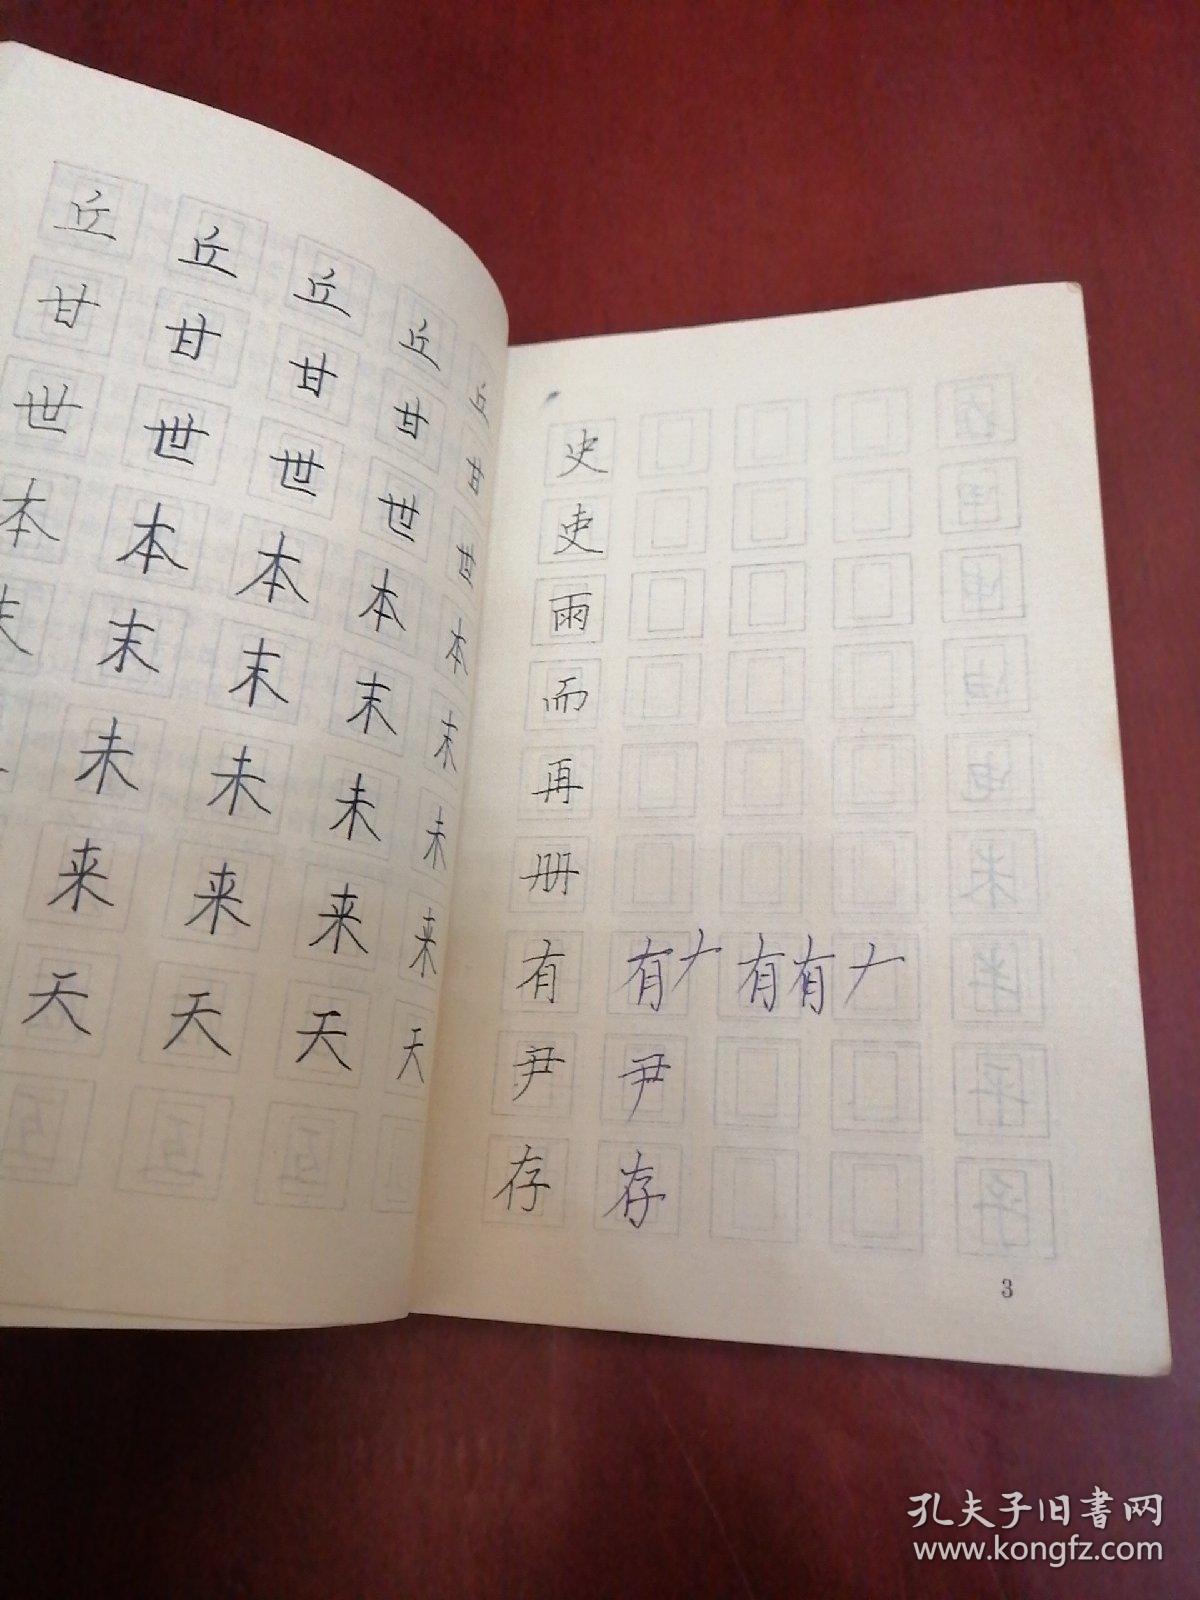 丘 丘 丘 丘 丘
甘 甘 甘 甘 甘
世 世 世 世 世
本 本 本 本 本
末 末 末 末
未 未 未 未
来 来 来 来
天 天 天 天
史
吏
雨
而
再
册
有 有𠂇有有𠂇
尹 尹
存 存
3
孔夫子旧书网
www.kongfz.com